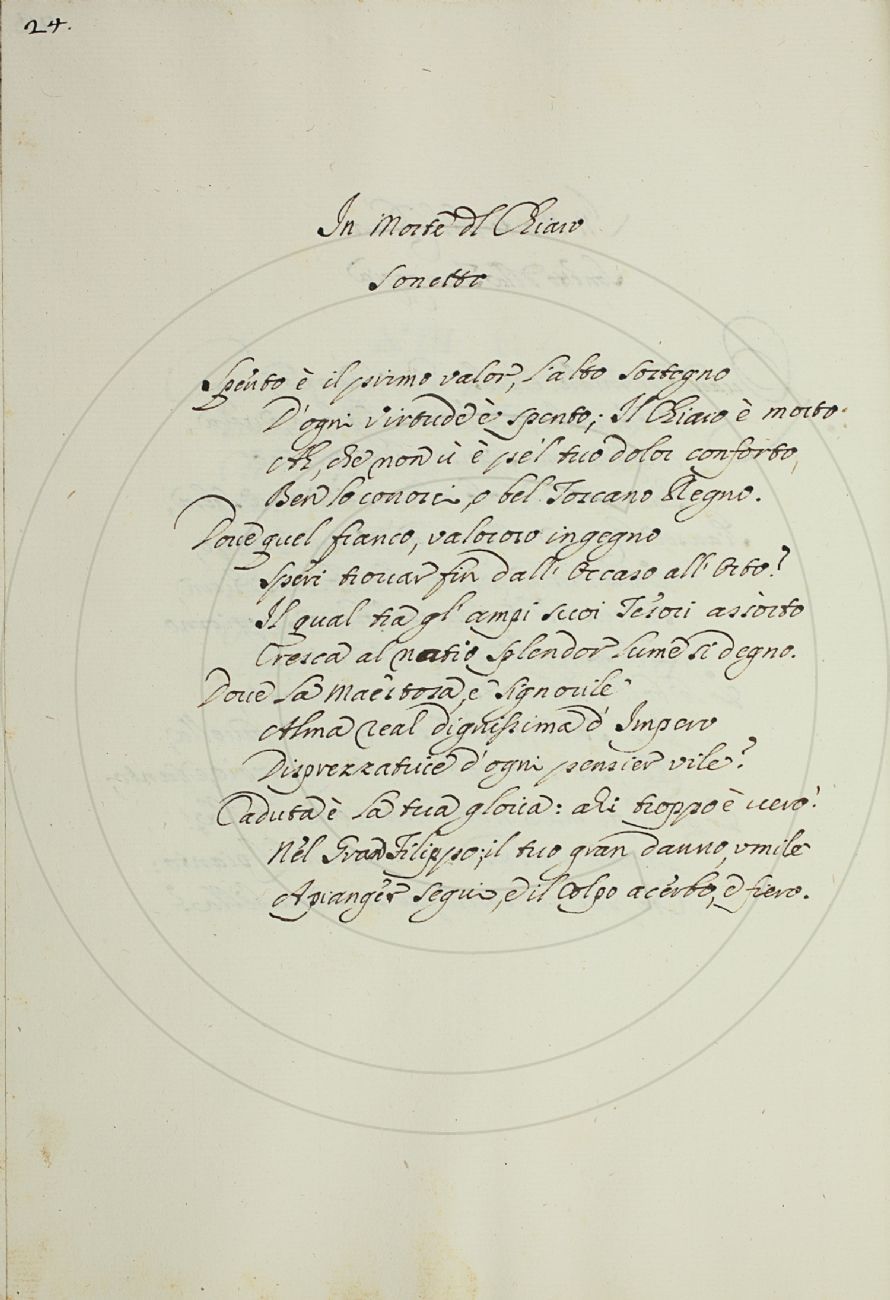 24.
In Morte dl Chiaro
Sonetto
Spento è il primo valor, l'alto sostegno
D'ogni virtude è spento; Il Chiaro è morto.
Ah, che non ui è pel tuo dolor conforto,
Ben lo conosci, o bel Toscano Regno.
Doue quel franco, valoroso ingegno
Speri trouar fin dall' Occaso all' Orto?
Il qual tra gl' ampi suoi Tesori assorto
Cresca al natio Splendor lume sì degno.
Doue la Maestosa, e Signorile
Alma real dignissima d' Impero
Disprezzatrice d'ogni pensier vile?
Caduta è la tua gloria: ahi troppo è uero!
Nel Gran Filippo; il tuo gran danno, vmile
A pianger segui, e il Colpo acerbo, e fiero.